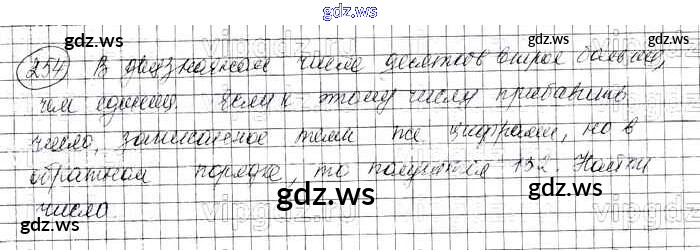 gdz.ws
gdz.ws
gdz.ws
254 В двузначном числе десятков втрое больше,
чем единиц. Если к этому числу прибавить
число, записанное теми же цифрами, но в
обратном порядке, то получится 132. Найти
число.
gdz.ws
gdz.ws
gdz.ws
gdz.ws